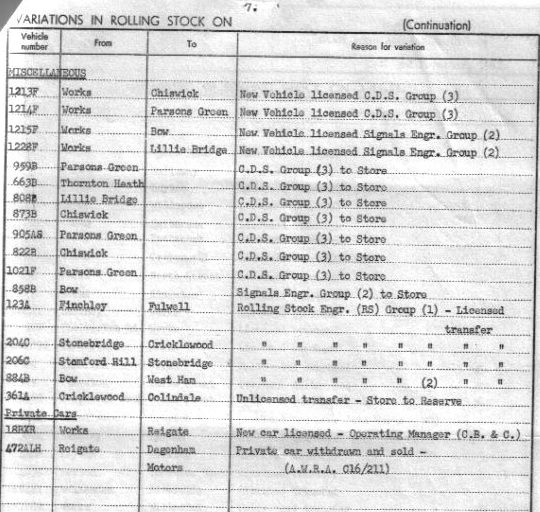 7.
VARIATIONS IN ROLLING STOCK ON (Continuation)
Vehicle number From To Reason for variation
MISCELLANEOUS
1213F Works Chiswick New Vehicle licensed C.D.S. Group (3)
1214F Works Parsons Green New Vehicle licensed C.D.S. Group (3)
1215F Works Bow New Vehicle licensed Signals Engr. Group (2)
1228F Works Lillie Bridge New Vehicle licensed Signals Engr. Group (2)
959B Parsons Green C.D.S. Group (3) to Store
663B Thornton Heath C.D.S. Group (3) to Store
808B Lillie Bridge C.D.S. Group (3) to Store
873B Chiswick C.D.S. Group (3) to Store
905AS Parsons Green C.D.S. Group (3) to Store
822B Chiswick C.D.S. Group (3) to Store
1021F Parsons Green C.D.S. Group (3) to Store
858B Bow Signals Engr. Group (2) to Store
123A Finchley Fulwell Rolling Stock Engr. (RS) Group (1) - Licensed
transfer
204C Stonebridge Cricklewood " " " " " " " "
206C Stamford Hill Stonebridge " " " " " " " "
884B Bow West Ham " " " " " (2) " "
361A Cricklewood Colindale Unlicensed transfer - Store to Reserve
Private Cars
18RXR Works Reigate New car licensed - Operating Manager (C.B. & C.)
472ALH Reigate Dagenham Private car withdrawn and sold -
Motors (A.W.R.A. C16/211)